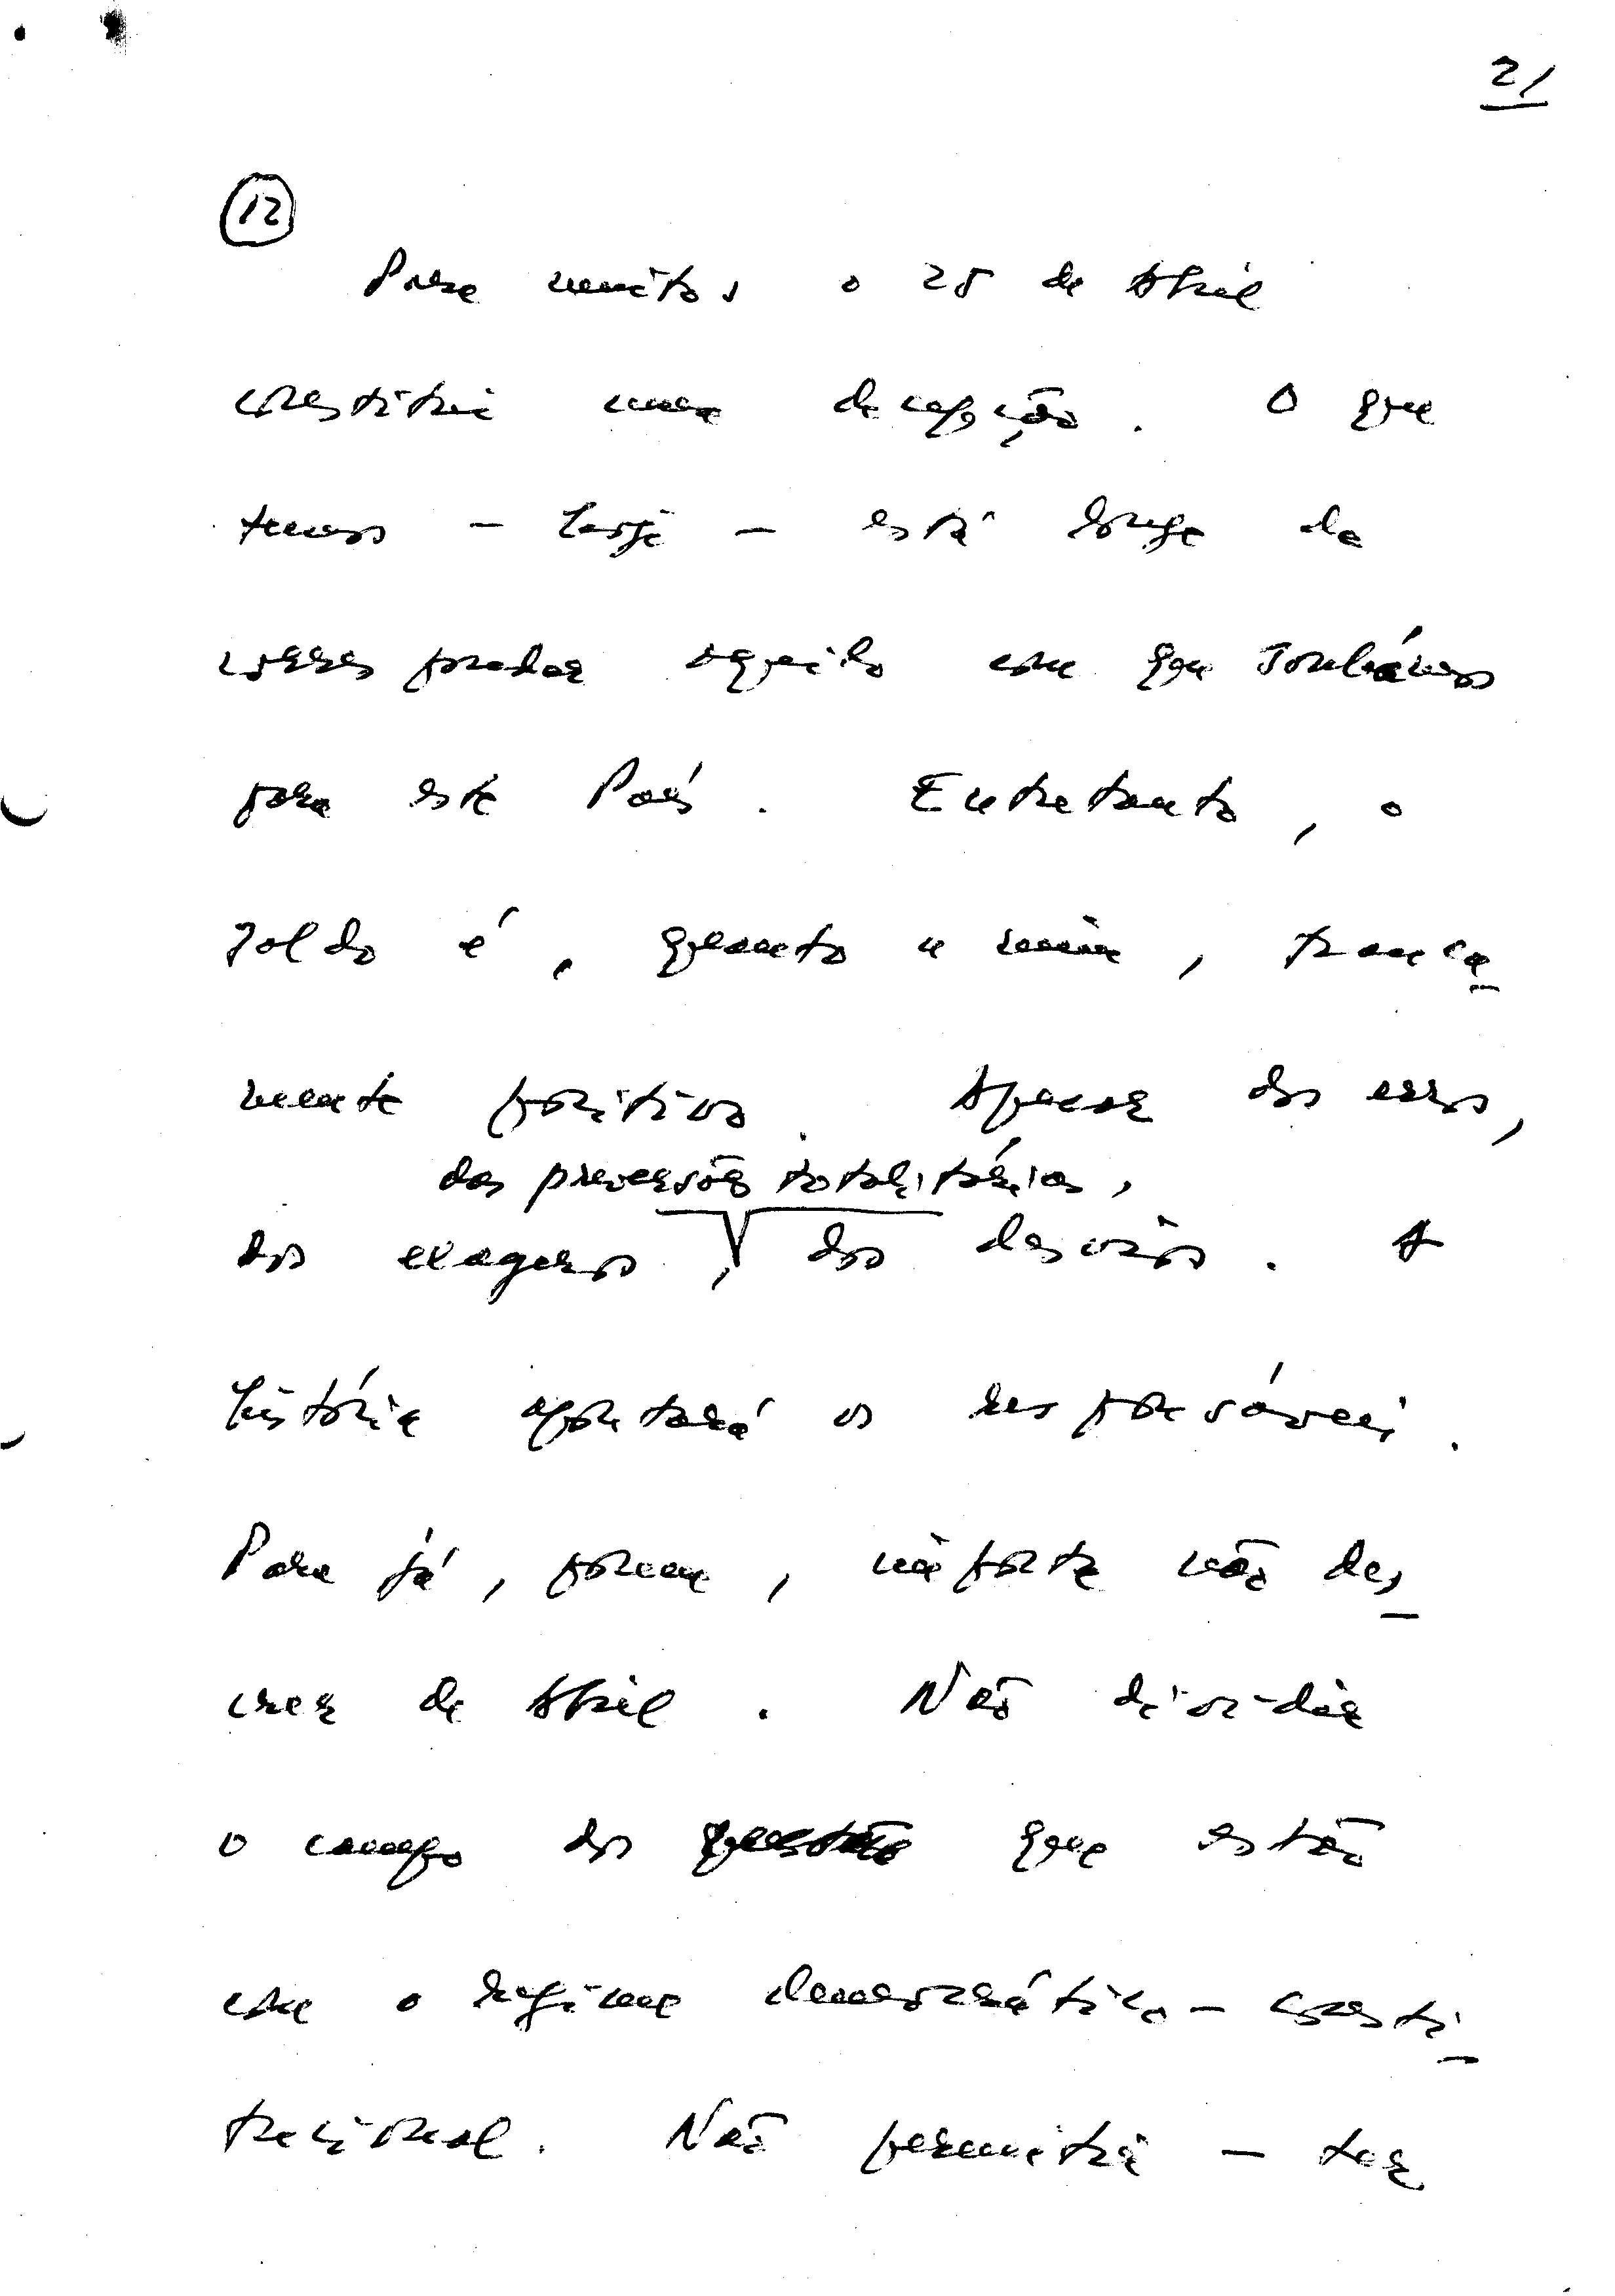 21
12
Para muitos o 25 de Abril
constitui uma decepção. O que
temos - hoje - está longe de
corresponder aquilo com que sonhámos
para este País. Entretanto, o
saldo é, quanto a mim, franca-
mente positivo. Apesar dos erros,
das perversões totalitárias,
dos exageros, dos desvios. A
história apontará os responsáveis.
Para já, porem, importa não des-
crer de Abril. Não dividir
o campo dos que estão
com o regime democrático-consti-
tucional. Não permitir - ter